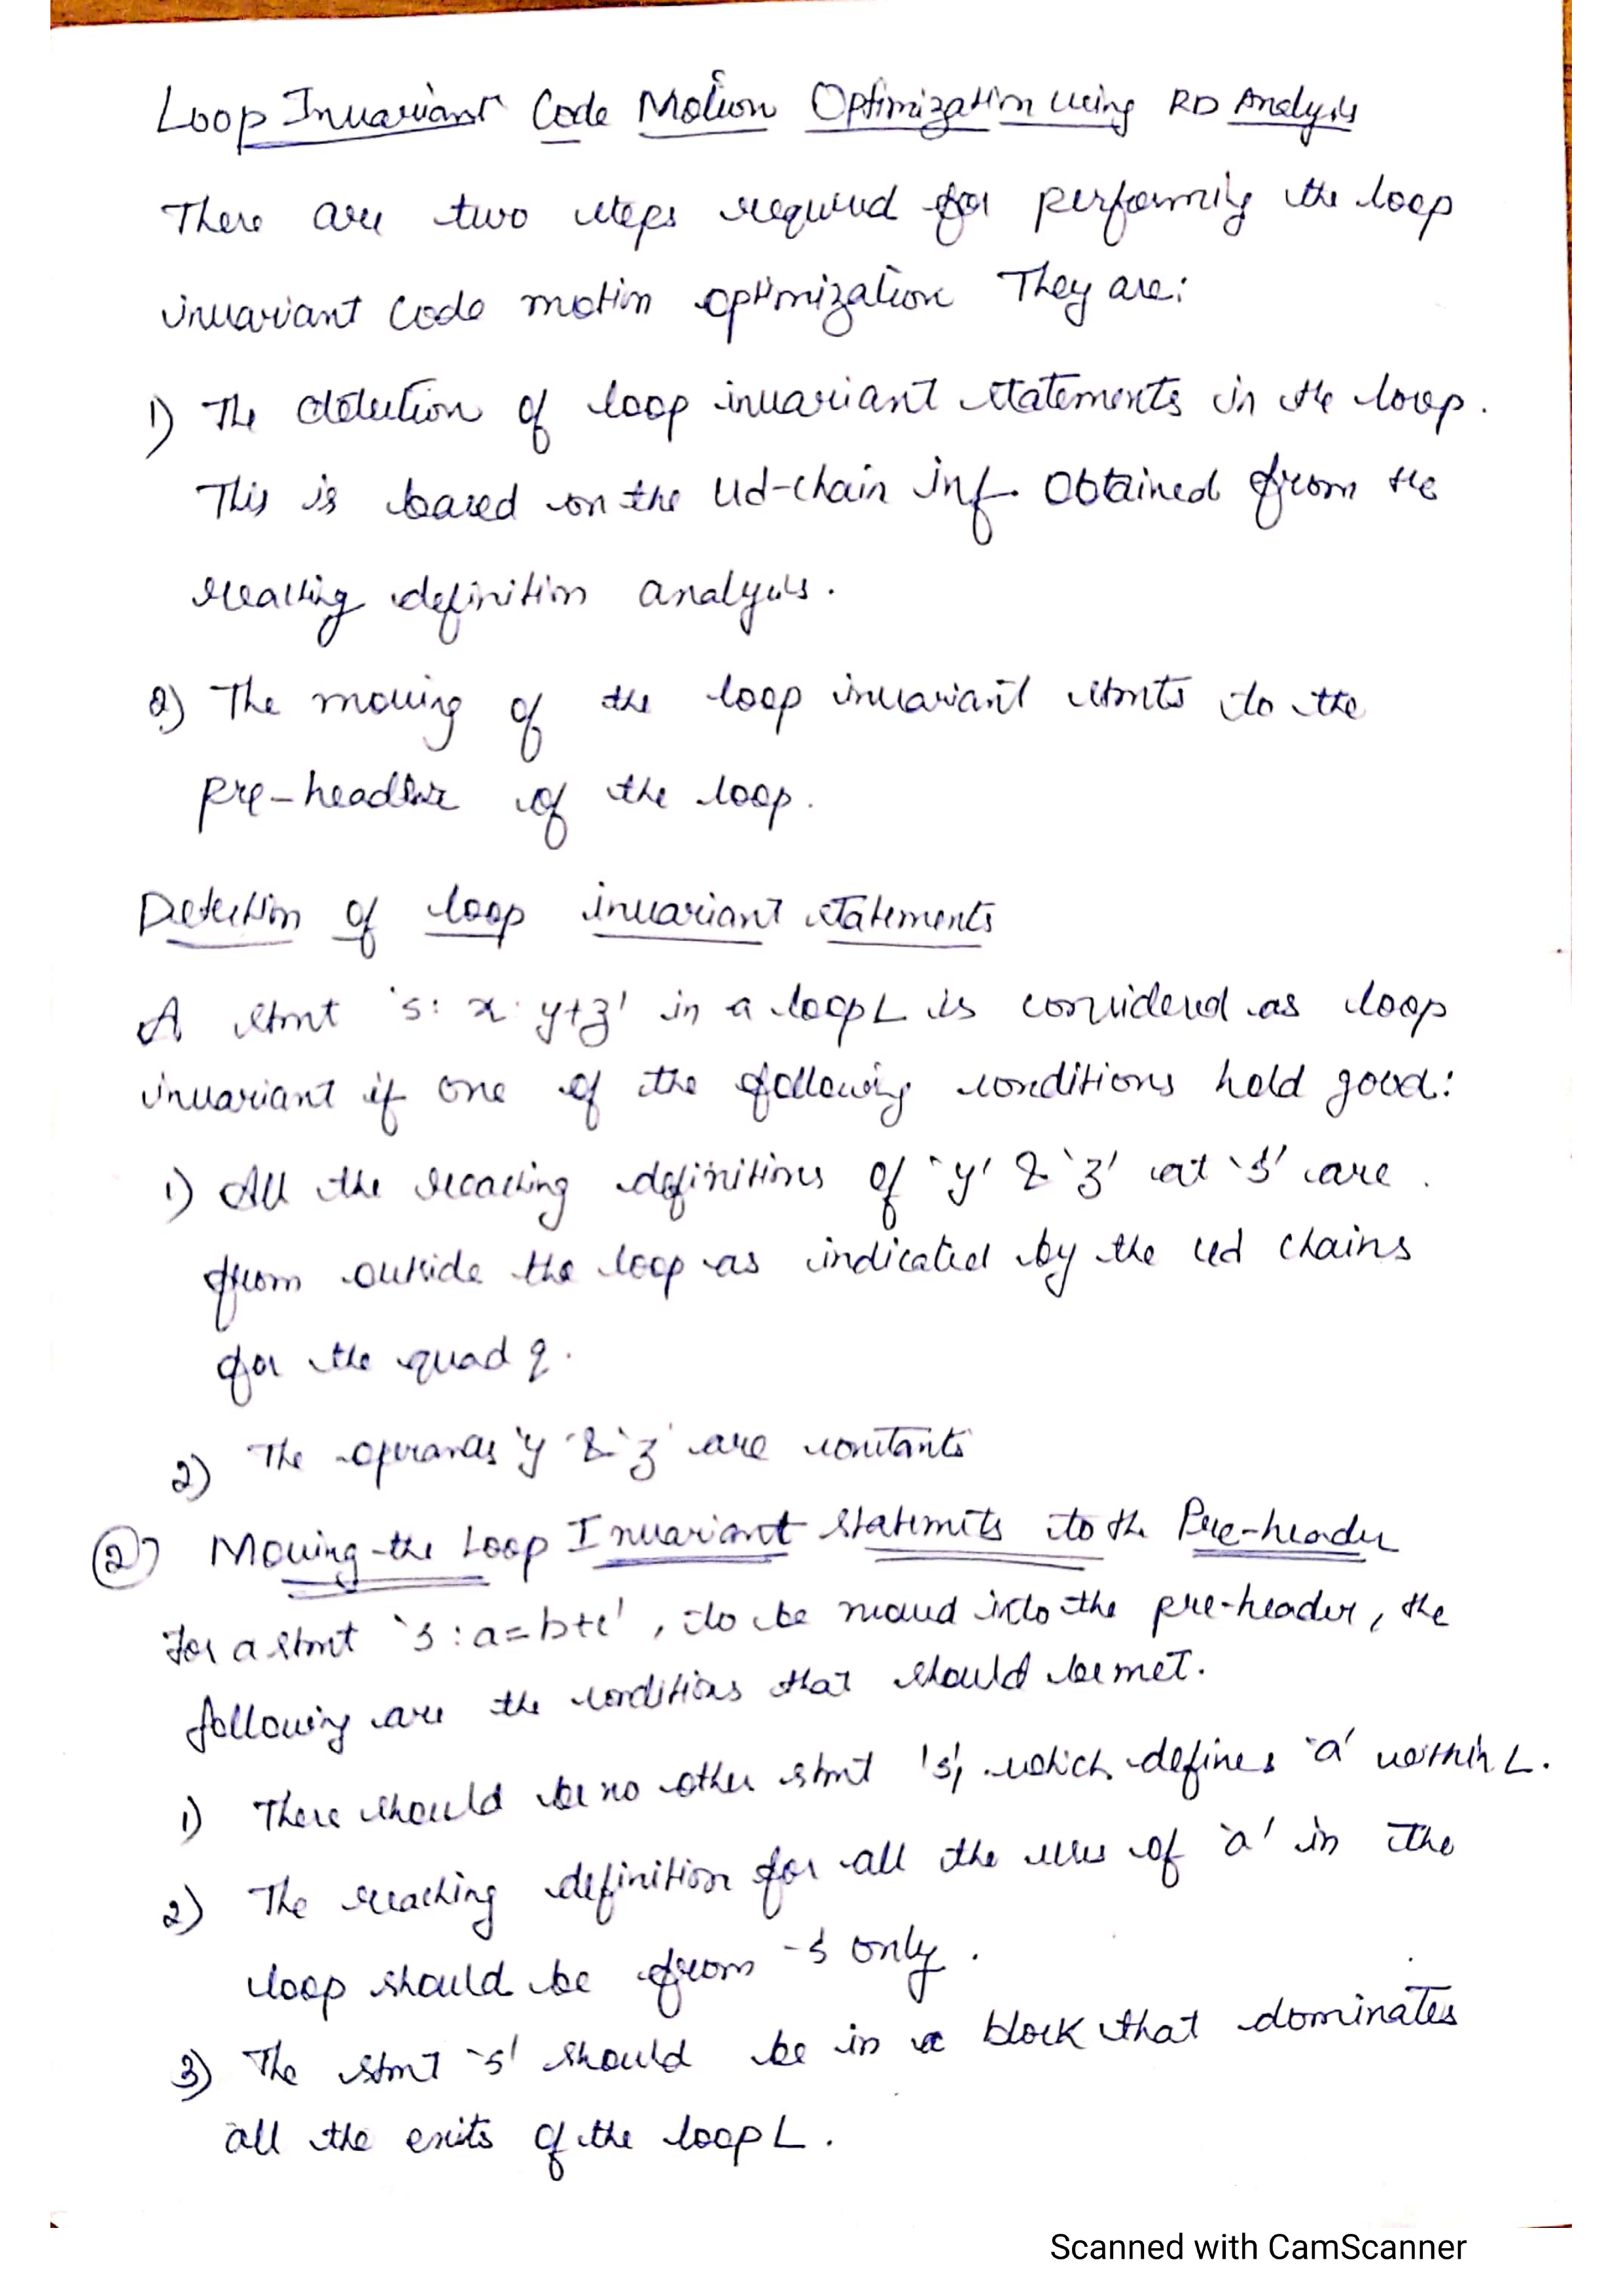 Loop Invariant Code Motion Optimization using RD Analysis
There are two steps required for performing the loop
invariant code motion optimization They are:
1) The detection of loop invariant statements in the loop.
This is based on the ud-chain inf. obtained from the
reaching definition analysis.
2) The moving of the loop invariant stmts to the
pre-header of the loop.
Detection of loop invariant statements
A stmt 's: x: y+z' in a loop L is considered as loop
invariant if one of the following conditions hold good:
1) All the reaching definitions of 'y' & 'z' at 's' are
from outside the loop as indicated by the ud chains
for the quad q.
2) The operands 'y' & 'z' are constants
2) Moving the Loop Invariant statements to the Pre-header
For a stmt 's : a = b+c', to be moved into the pre-header, the
following are the conditions that should be met.
1) There should be no other stmt 's', which defines 'a' within L.
2) The reaching definition for all the uses of 'a' in the
loop should be from -s only.
3) The stmt 's' should be in a block that dominates
all the exits of the loop L.
Scanned with CamScanner